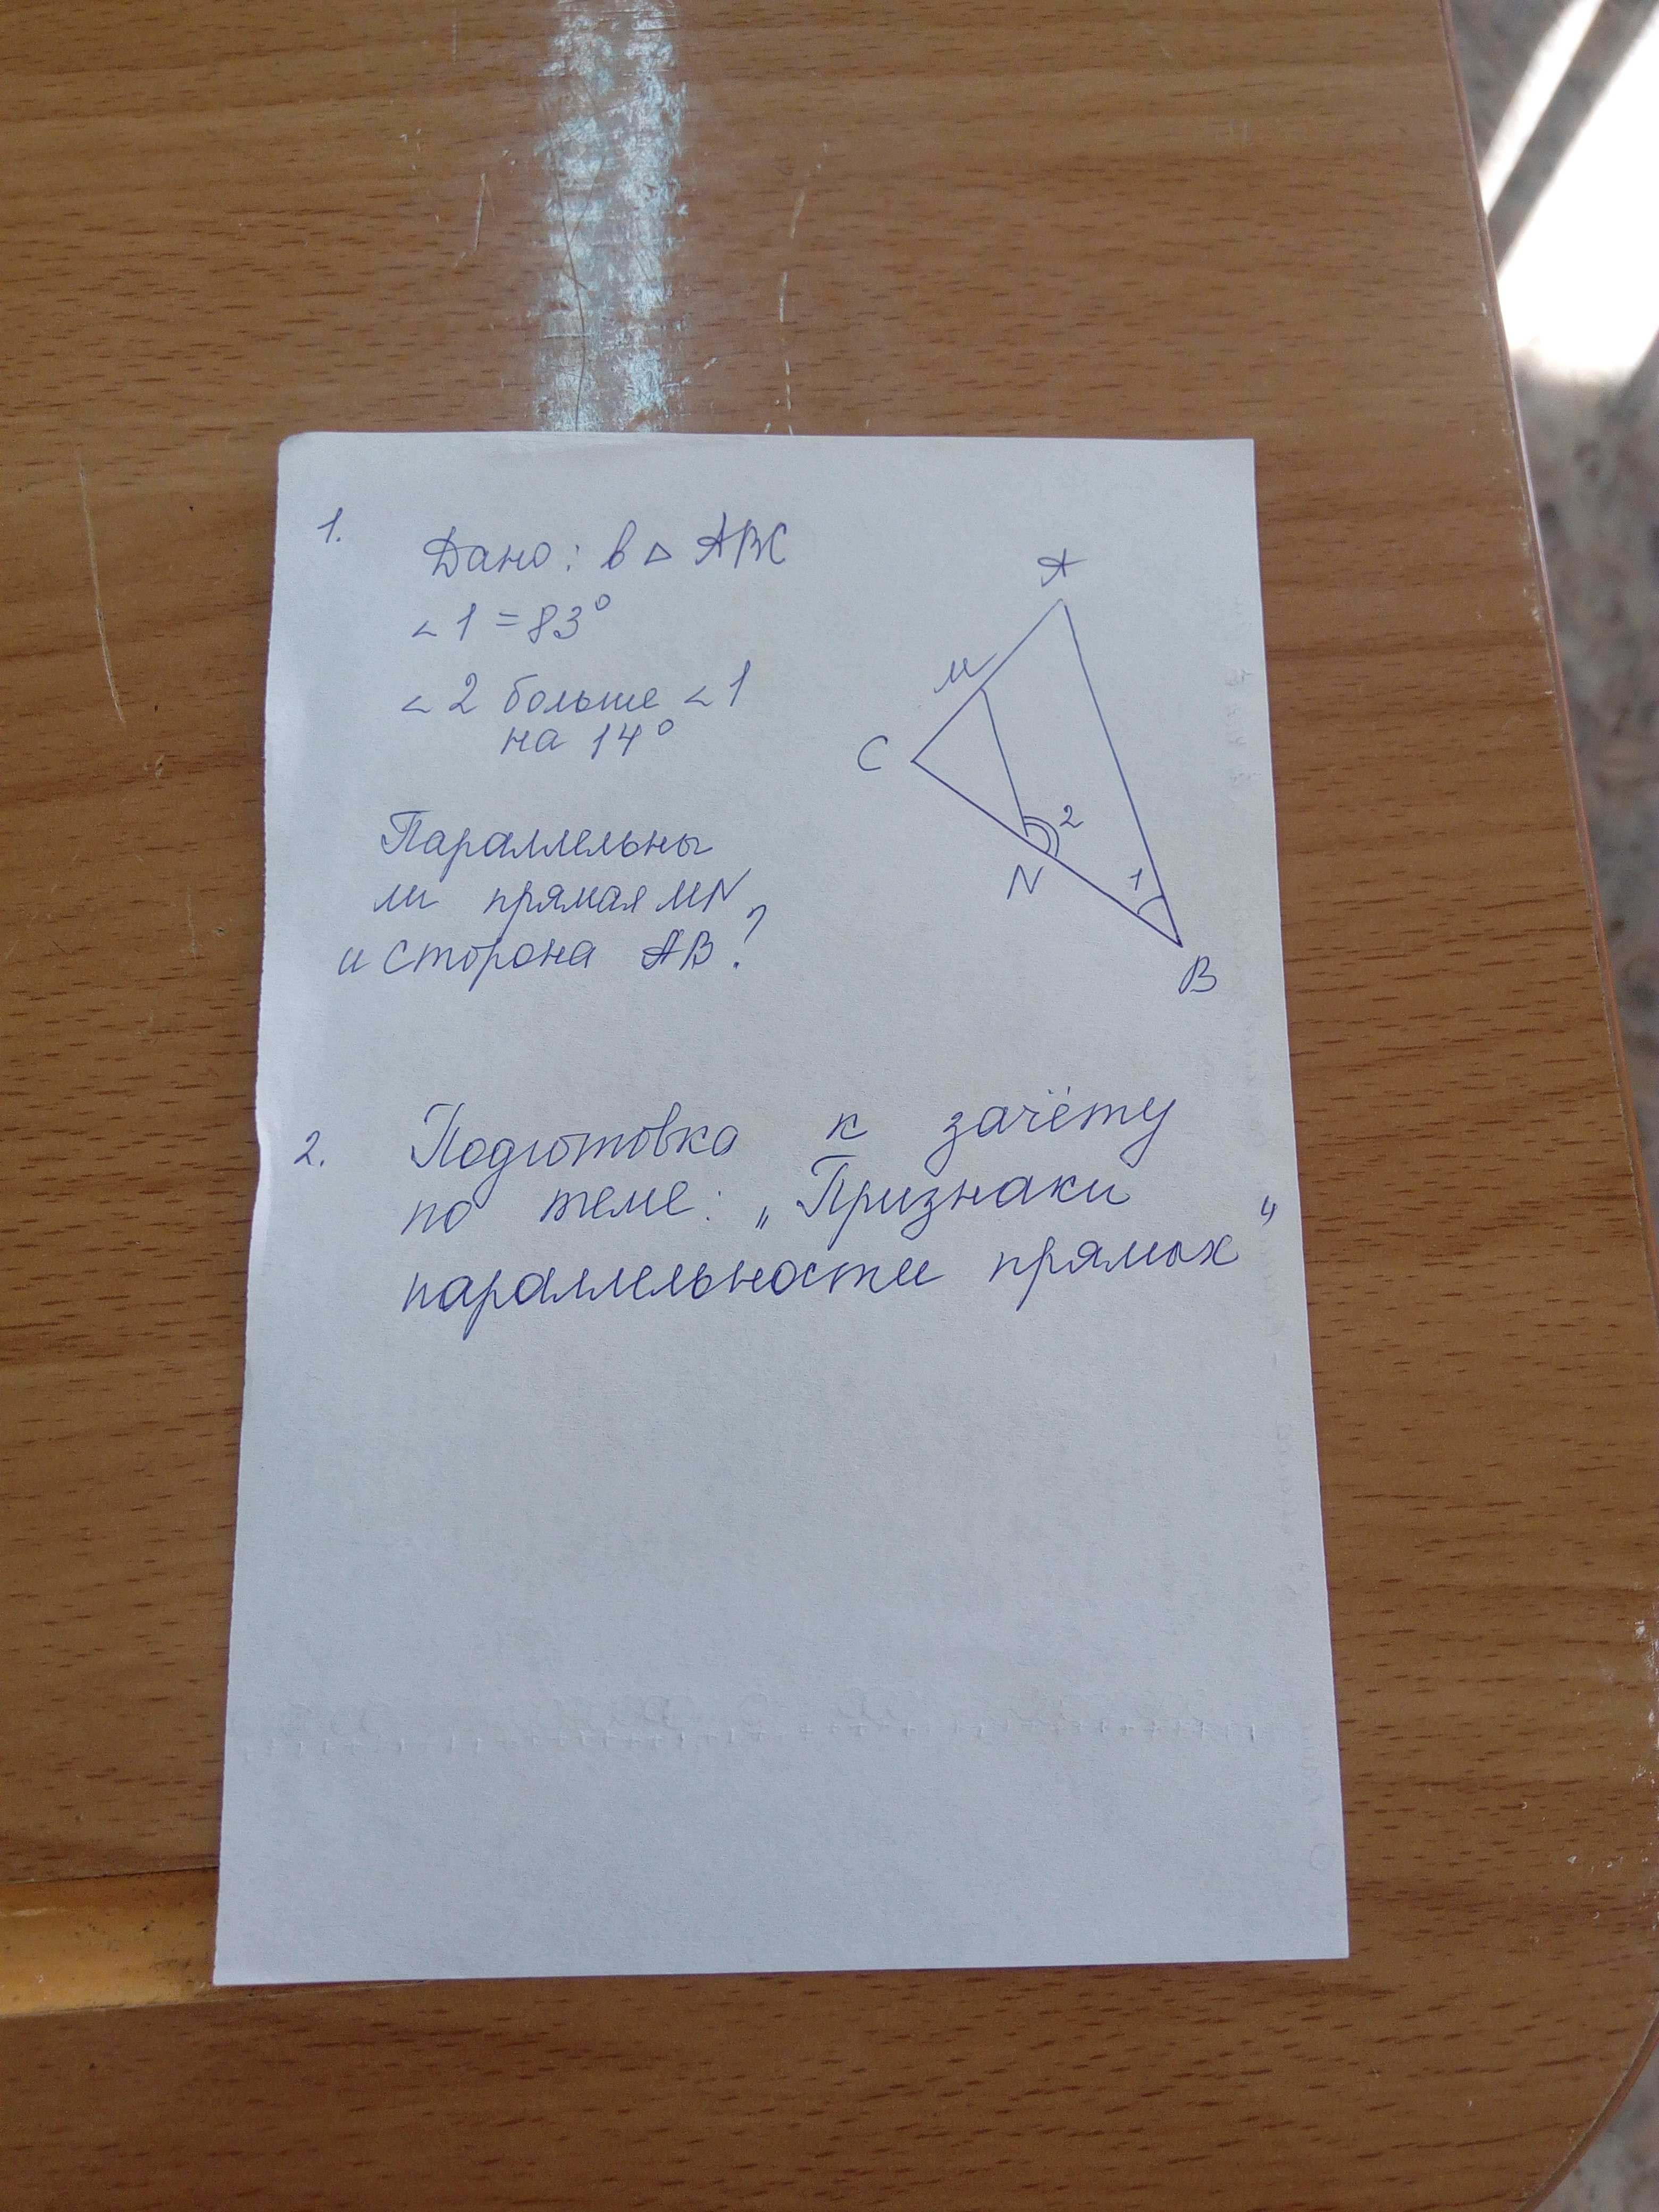 1.
Дано: в △ ABC
∠1 = 83°
∠2 больше ∠1
на 14°
Параллельны
ли прямая MN
и сторона AB?
A
M
C
2
N
1
B
2. Подготовка к зачёту
по теме: „Признаки
параллельности прямых"